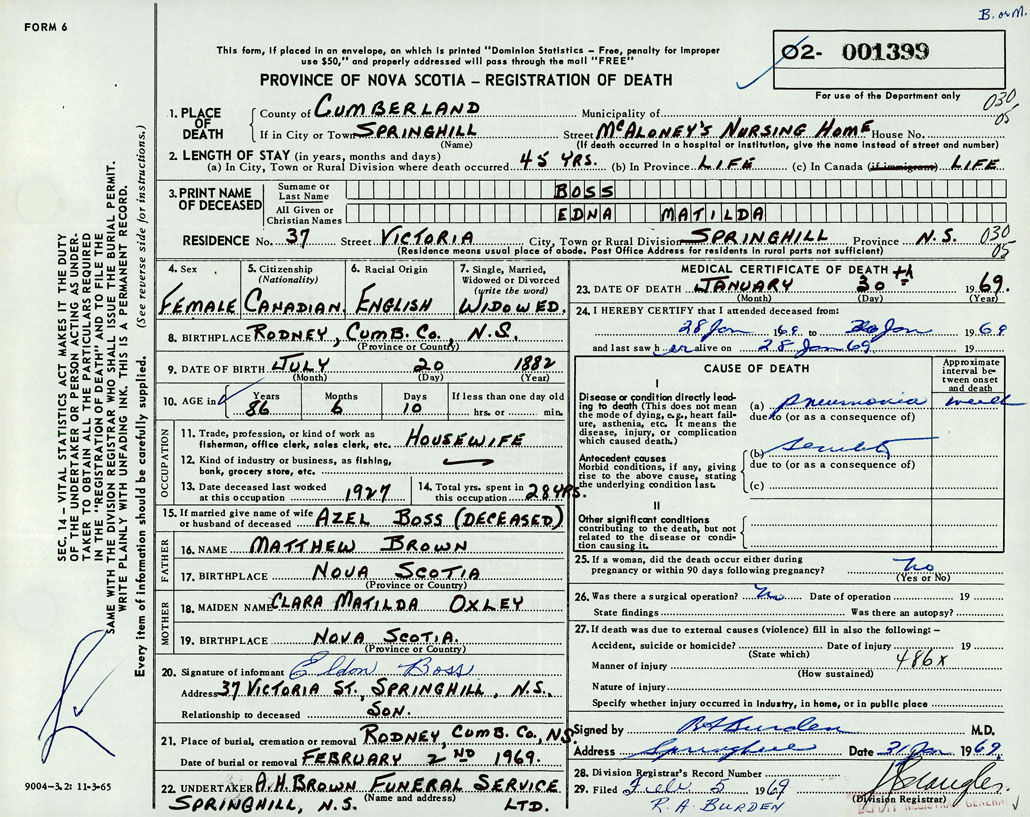 B. or M.
FORM 6
This form, if placed in an envelope, on which is printed "Dominion Statistics – Free, penalty for improper
use $50," and properly addressed will pass through the mail "FREE"
02- 001399
PROVINCE OF NOVA SCOTIA – REGISTRATION OF DEATH
For use of the Department only
030
05
1. PLACE OF DEATH
County of CUMBERLAND Municipality of
If in City or Town SPRINGHILL Street McALONEY'S NURSING HOME House No.
(Name) (If death occurred in a hospital or institution, give the name instead of street and number)
2. LENGTH OF STAY (in years, months and days)
(a) In City, Town or Rural Division where death occurred 45 YRS. (b) In Province LIFE (c) In Canada (if immigrant) LIFE
3. PRINT NAME OF DECEASED
Surname or Last Name BOSS
All Given or Christian Names EDNA MATILDA
RESIDENCE No. 37 Street VICTORIA City, Town or Rural Division SPRINGHILL Province N.S. 030
05
(Residence means usual place of abode. Post Office Address for residents in rural parts not sufficient)
4. Sex
FEMALE
5. Citizenship
(Nationality)
CANADIAN
6. Racial Origin
ENGLISH
7. Single, Married,
Widowed or Divorced
(write the word)
WIDOWED.
8. BIRTHPLACE RODNEY, CUMB. CO., N.S.
(Province or Country)
9. DATE OF BIRTH JULY 20 1882
(Month) (Day) (Year)
10. AGE in Years Months Days If less than one day old
86 6 10 hrs. or min.
OCCUPATION
11. Trade, profession, or kind of work as
fisherman, office clerk, sales clerk, etc. HOUSEWIFE
12. Kind of industry or business, as fishing,
bank, grocery store, etc.
13. Date deceased last worked
at this occupation 1927
14. Total yrs. spent in
this occupation 28 YRS.
15. If married give name of wife
or husband of deceased AZEL BOSS (DECEASED)
FATHER
16. NAME MATTHEW BROWN
17. BIRTHPLACE NOVA SCOTIA
(Province or Country)
MOTHER
18. MAIDEN NAME CLARA MATILDA OXLEY
19. BIRTHPLACE NOVA SCOTIA.
(Province or Country)
20. Signature of informant Eldon Boss
Address 37 VICTORIA ST., SPRINGHILL, N.S.
Relationship to deceased SON.
21. Place of burial, cremation or removal RODNEY, CUMB. CO., NS.
Date of burial or removal FEBRUARY 2ND 1969.
22. UNDERTAKER A.H. BROWN FUNERAL SERVICE
(Name and address)
SPRINGHILL, N.S. LTD.
MEDICAL CERTIFICATE OF DEATH
23. DATE OF DEATH JANUARY 30th 1969.
(Month) (Day) (Year)
24. I HEREBY CERTIFY that I attended deceased from:
28 Jan 1969 to 30 Jan 1969
and last saw her alive on 28 Jan 69. 19
CAUSE OF DEATH
Approximate
interval be-
tween onset
and death
I
Disease or condition directly lead-
ing to death (This does not mean
the mode of dying, e.g., heart fail-
ure, asthenia, etc. It means the
disease, injury, or complication
which caused death.)
(a) pneumonia week
due to (or as a consequence of)
Antecedent causes
Morbid conditions, if any, giving
rise to the above cause, stating
the underlying condition last.
(b)
due to (or as a consequence of)
(c)
II
Other significant conditions
contributing to the death, but not
related to the disease or condi-
tion causing it.
25. If a woman, did the death occur either during
pregnancy or within 90 days following pregnancy? No
(Yes or No)
26. Was there a surgical operation? No Date of operation 19
State findings Was there an autopsy?
27. If death was due to external causes (violence) fill in also the following: –
Accident, suicide or homicide? Date of injury 19
(State which)
486X
Manner of injury
(How sustained)
Nature of injury
Specify whether injury occurred in industry, in home, or in public place
Signed by RA Burden M.D.
Address Springhill Date 31 Jan 1969
28. Division Registrar's Record Number
29. Filed Feb 5 1969
R. A. BURDEN (Division Registrar)
DEPUTY REGISTRAR GENERAL
SEC. 14 – VITAL STATISTICS ACT MAKES IT THE DUTY
OF THE UNDERTAKER OR PERSON ACTING AS UNDER-
TAKER TO OBTAIN ALL THE PARTICULARS REQUIRED
IN THE "REGISTRATION OF DEATH" AND TO FILE THE
SAME WITH THE DIVISION REGISTRAR WHO SHALL ISSUE THE BURIAL PERMIT.
WRITE PLAINLY WITH UNFADING INK. THIS IS A PERMANENT RECORD.
Every item of information should be carefully supplied. (See reverse side for instructions.)
9004-3.2: 11-3-65